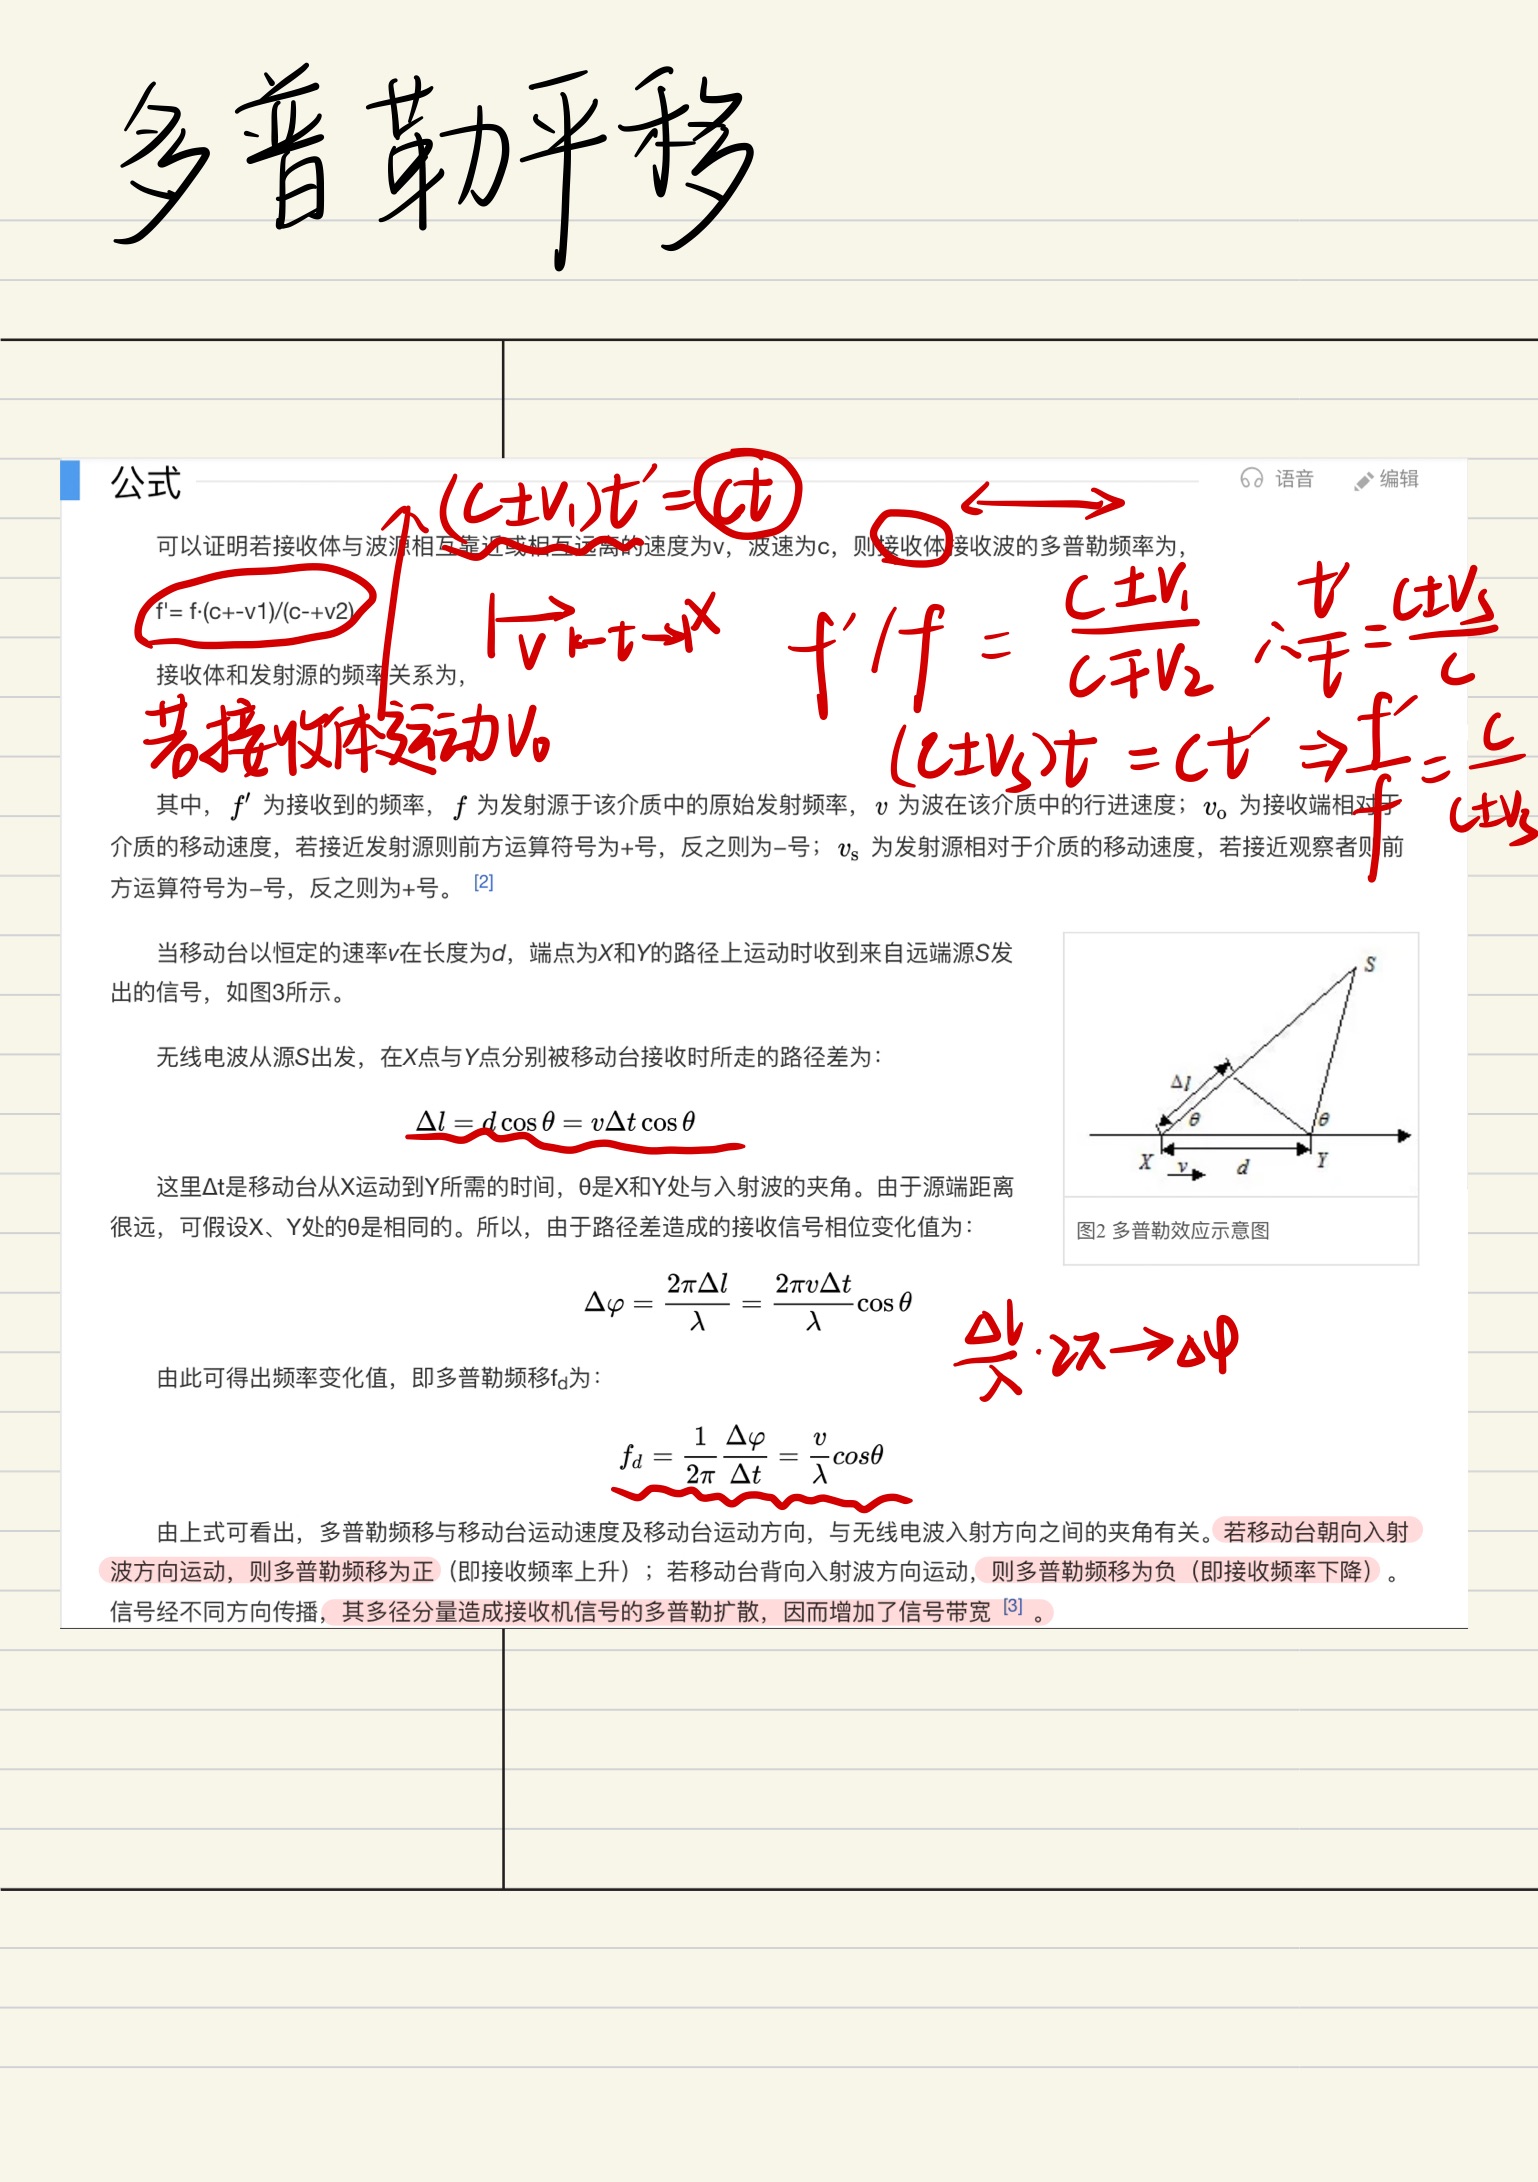 多普勒平移
公式
语音 编辑
(c±v₁)t′=ct
可以证明若接收体与波源相互靠近或相互远离的速度为v，波速为c，则接收体接收波的多普勒频率为，
f'= f·(c+-v1)/(c-+v2)
v t x
f′/f = (c±v₁)/(c∓v₂)
∴ t′/t = (c±vₛ)/c
接收体和发射源的频率关系为，
若接收体运动v₀
(c±vₛ)t = ct′ ⇒ f′/f = c/(c±vₛ)
其中，f′ 为接收到的频率，f 为发射源于该介质中的原始发射频率，v 为波在该介质中的行进速度；vₒ 为接收端相对于
介质的移动速度，若接近发射源则前方运算符号为+号，反之则为−号；vₛ 为发射源相对于介质的移动速度，若接近观察者则前
方运算符号为−号，反之则为+号。 [2]
当移动台以恒定的速率v在长度为d，端点为X和Y的路径上运动时收到来自远端源S发
出的信号，如图3所示。
无线电波从源S出发，在X点与Y点分别被移动台接收时所走的路径差为：
Δl = d cos θ = vΔt cos θ
这里Δt是移动台从X运动到Y所需的时间，θ是X和Y处与入射波的夹角。由于源端距离
很远，可假设X、Y处的θ是相同的。所以，由于路径差造成的接收信号相位变化值为：
S
Δl
θ θ
X v d Y
图2 多普勒效应示意图
Δφ = 2πΔl/λ = 2πvΔt/λ cos θ
Δl/λ · 2π → Δφ
由此可得出频率变化值，即多普勒频移fd为：
f_d = 1/2π Δφ/Δt = v/λ cosθ
由上式可看出，多普勒频移与移动台运动速度及移动台运动方向，与无线电波入射方向之间的夹角有关。若移动台朝向入射
波方向运动，则多普勒频移为正（即接收频率上升）；若移动台背向入射波方向运动，则多普勒频移为负（即接收频率下降）。
信号经不同方向传播，其多径分量造成接收机信号的多普勒扩散，因而增加了信号带宽 [3] 。